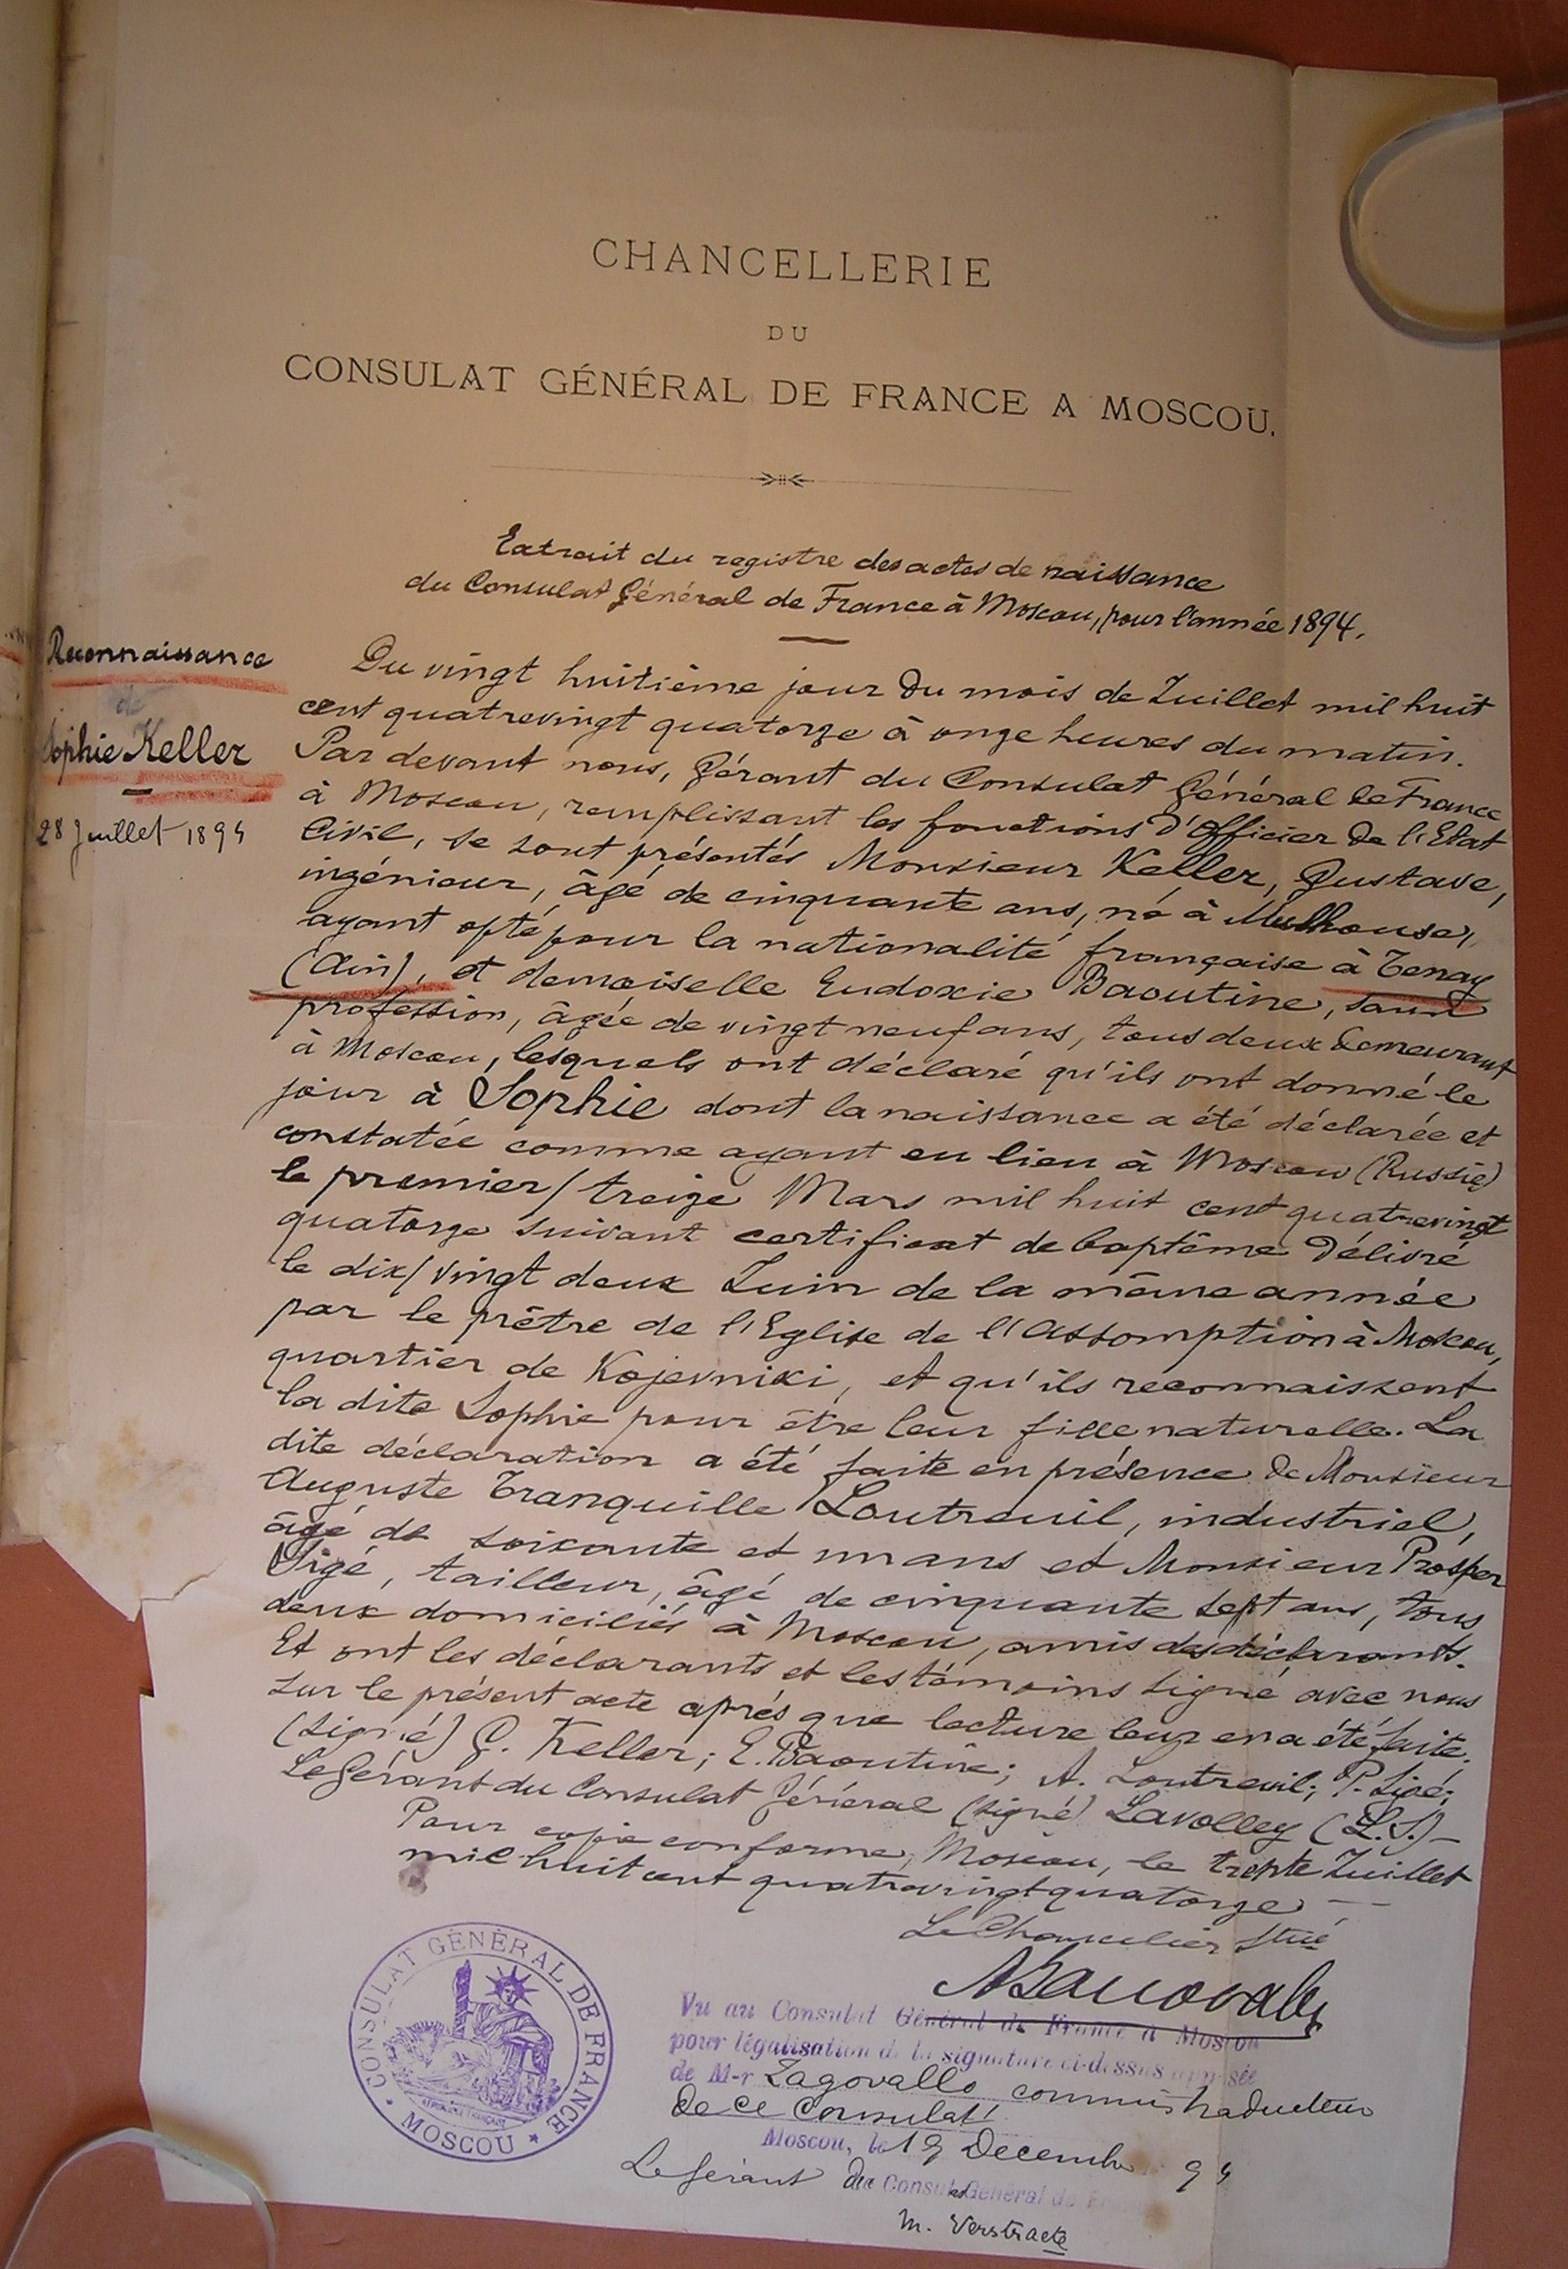 CHANCELLERIE
DU
CONSULAT GÉNÉRAL DE FRANCE A MOSCOU.
Extrait du registre des actes de naissance
du Consulat Général de France à Moscou, pour l'année 1894.
Reconnaissance
de
Sophie Keller
28 Juillet 1894
Du vingt huitième jour du mois de Juillet mil huit
cent quatrevingt quatorze à onze heures du matin.
Par devant nous, Gérant du Consulat Général de France
à Moscou, remplissant les fonctions d'Officier de l'Etat
Civil, se sont présentés Monsieur Keller, Gustave,
ingénieur, âgé de cinquante ans, né à Mulhouse,
ayant opté pour la nationalité française à Tenay
(Ain), et demoiselle Eudoxie Baoutine, sans
profession, âgée de vingt neuf ans, tous deux demeurant
à Moscou, lesquels ont déclaré qu'ils ont donné le
jour à Sophie dont la naissance a été déclarée et
constatée comme ayant eu lieu à Moscou (Russie)
le premier/treize Mars mil huit cent quatrevingt
quatorze suivant certificat de baptême délivré
le dix/vingt deux Juin de la même année
par le prêtre de l'Eglise de l'Assomption à Moscou,
quartier de Kojevniki, et qu'ils reconnaissent
la dite Sophie pour être leur fille naturelle. La
dite déclaration a été faite en présence de Monsieur
Auguste Tranquille Loutreuil, industriel,
âgé de soixante et un ans et Monsieur Prosper
Sigé, tailleur, âgé de cinquante sept ans, tous
deux domiciliés à Moscou, amis des déclarants.
Et ont les déclarants et les témoins signé avec nous
sur le présent acte après que lecture leur en a été faite.
(signé) G. Keller; E. Baoutine; A. Loutreuil; P. Sigé;
Le Gérant du Consulat Général (signé) Lavolley (L.S.) —
Pour copie conforme, Moscou, le trente Juillet
mil huit cent quatrevingt quatorze —
Le Chancelier Stué
CONSULAT GÉNÉRAL DE FRANCE
MOSCOU
RÉPUBLIQUE FRANÇAISE
Vu au Consulat Général de France à Moscou
pour légalisation de la signature ci-dessus apposée
de M-r Zagovallo commis traducteur
de ce Consulat
Moscou, le 19 Decembre 94
Le Gérant du Consulat Général de
M. Verstraete